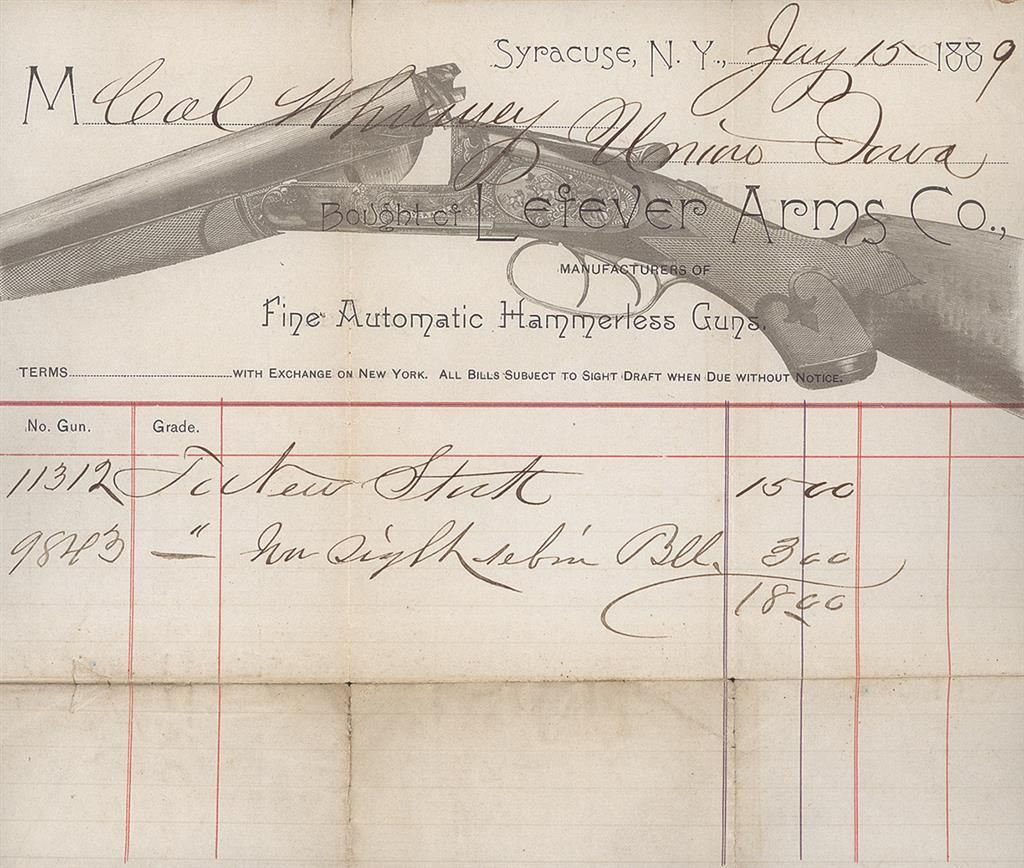 Syracuse, N. Y., Jay 15 1889
M Col Whitney Union Iowa
Bought of Lefever Arms Co.,
MANUFACTURERS OF
Fine Automatic Hammerless Guns.
TERMS WITH EXCHANGE ON NEW YORK. ALL BILLS SUBJECT TO SIGHT DRAFT WHEN DUE WITHOUT NOTICE.
No. Gun. Grade.
11312 To New Stock 15 00
9843 " sight Bbl. 3 00
18 00